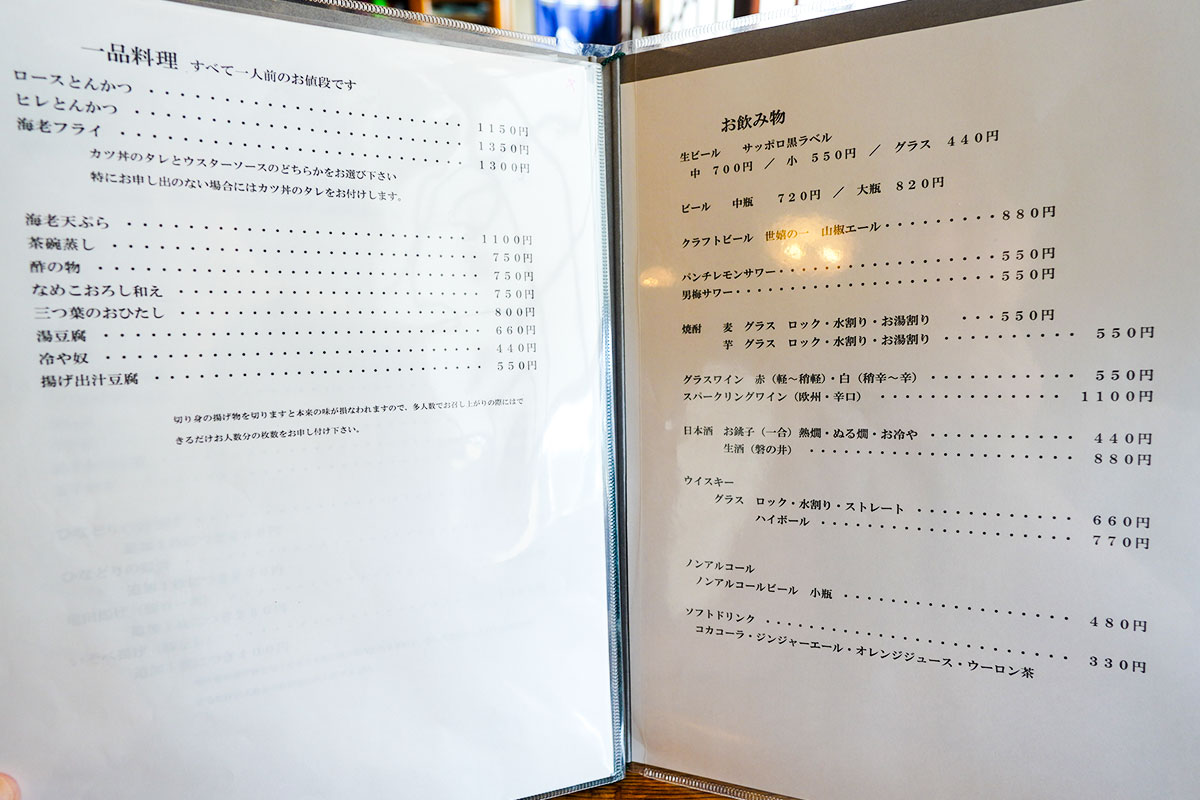 一品料理 すべて一人前のお値段です
ロースとんかつ ・・・・・・・・・・・・・・・・・・・・ 1150円
ヒレとんかつ ・・・・・・・・・・・・・・・・・・・・ 1350円
海老フライ ・・・・・・・・・・・・・・・・・・・・ 1300円
カツ丼のタレとウスターソースのどちらかをお選び下さい
特にお申し出のない場合にはカツ丼のタレをお付けします。
海老天ぷら ・・・・・・・・・・・・・・・・・・・・ 1100円
茶碗蒸し ・・・・・・・・・・・・・・・・・・・・ 750円
酢の物 ・・・・・・・・・・・・・・・・・・・・ 750円
なめこおろし和え ・・・・・・・・・・・・・・・・・・・・ 750円
三つ葉のおひたし ・・・・・・・・・・・・・・・・・・・・ 800円
湯豆腐 ・・・・・・・・・・・・・・・・・・・・ 660円
冷や奴 ・・・・・・・・・・・・・・・・・・・・ 440円
揚げ出汁豆腐 ・・・・・・・・・・・・・・・・・・・・ 550円
切り身の揚げ物を切りますと本来の味が損なわれますので、多人数でお召し上がりの際にはで
きるだけお人数分の枚数をお申し付け下さい。
お飲み物
生ビール サッポロ黒ラベル
中 700円 / 小 550円 / グラス 440円
ビール 中瓶 720円 / 大瓶 820円
クラフトビール 世嬉の一 山椒エール・・・・・・・・・・880円
パンチレモンサワー・・・・・・・・・・・・・・・・・・550円
男梅サワー・・・・・・・・・・・・・・・・・・・・・550円
焼酎 麦 グラス ロック・水割り・お湯割り ・・・550円
芋 グラス ロック・水割り・お湯割り ・・・・・・・・・・ 550円
グラスワイン 赤（軽～稍軽）・白（稍辛～辛） ・・・・・・・・・・・ 550円
スパークリングワイン（欧州・辛口） ・・・・・・・・・・・・・・ 1100円
日本酒 お銚子（一合）熱燗・ぬる燗・お冷や ・・・・・・・・・・・ 440円
生酒（磐の井） ・・・・・・・・・・・・・・・・・・・・ 880円
ウイスキー
グラス ロック・水割り・ストレート ・・・・・・・・・・・・ 660円
ハイボール ・・・・・・・・・・・・・・・・・・・ 770円
ノンアルコール
ノンアルコールビール 小瓶 ・・・・・・・・・・・・・・・・・ 480円
ソフトドリンク ・・・・・・・・・・・・・・・・・・・・・・・ 330円
コカコーラ・ジンジャーエール・オレンジジュース・ウーロン茶